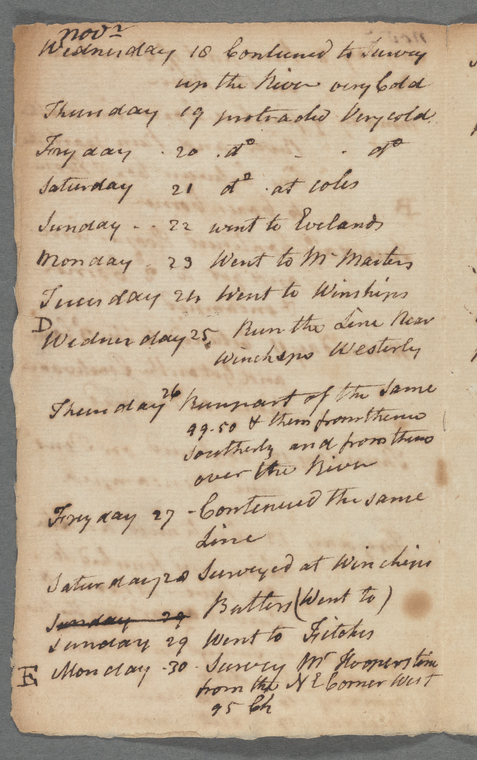 novr
Wednesday 18 Contened to Survey
up the River very Cold
Thursday 19 protracted Very cold
Fryday . 20 . do - . do
Saturday 21 do . at Coles
Sunday - . 22 went to Evelands
Monday . 23 Went to Mr Masters
Tuesday 24 Went to Winships
D
Wednesday 25, Run the Line Near
Winships Westerly
Thursday 26 Run part of the Same
49.50 & then from thence
Southerly and from thence
over the River
Fryday 27 - Contenued the same
Line
Saturday 28 Surveyed at Winships
Sunday 29 Butlers (Went to)
Sunday 29 Went to Fitches
E Monday . 30 - Survey Mr Hoopers
from the N E Corner West
95 Ch